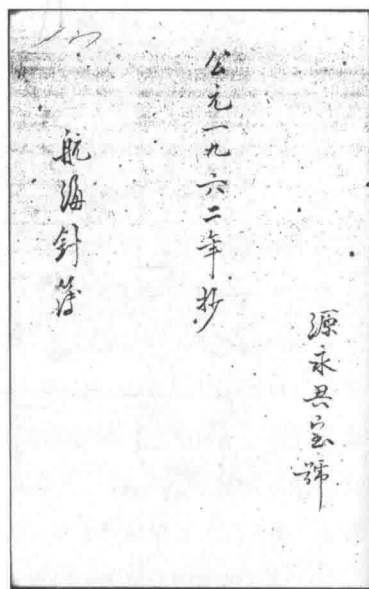 源永兴宝號
公元一九六二年抄
航海針簿